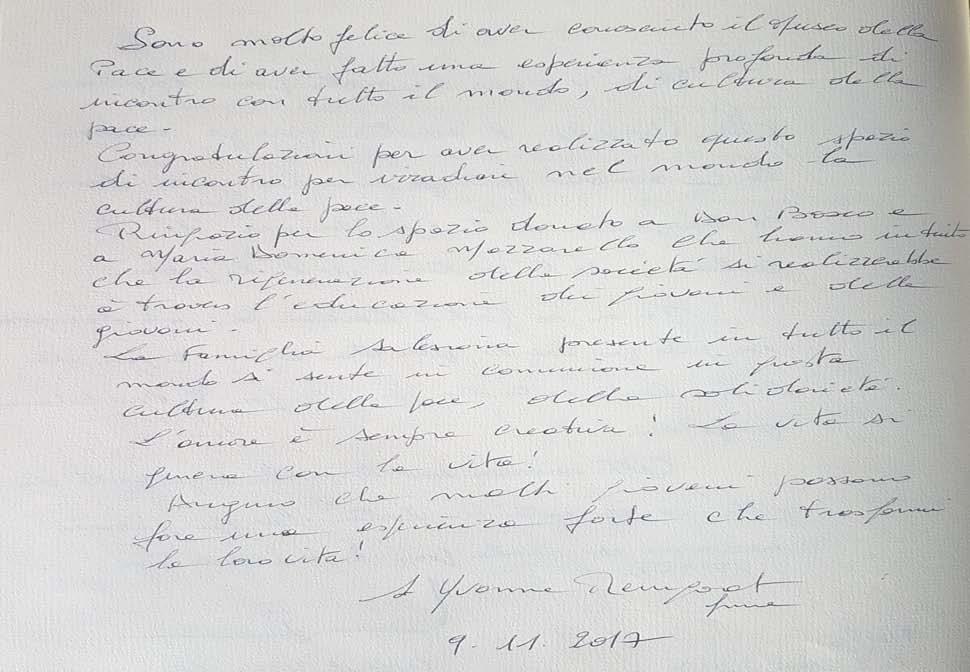 Sono molto felice di aver conosciuto il Museo della
Pace e di aver fatto una esperienza profonda di
incontro con tutto il mondo, di cultura della
pace.
Congratulazioni per aver realizzato questo spazio
di incontro per irradiare nel mondo la
cultura della pace.
Ringrazio per lo spazio donato a Don Bosco e
a Maria Domenica Mazzarello che hanno intuito
che la rigenerazione della società si realizzerebbe
attraverso l'educazione dei giovani e delle
giovani.
La Famiglia salesiana presente in tutto il
mondo si sente in comunione in questa
cultura della pace, della solidarietà.
L'amore è sempre creativo! La vita si
genera con la vita!
Auguro che molti giovani possano
fare una esperienza forte che trasformi
la loro vita!
Yvonne
fma
9. 11. 2017